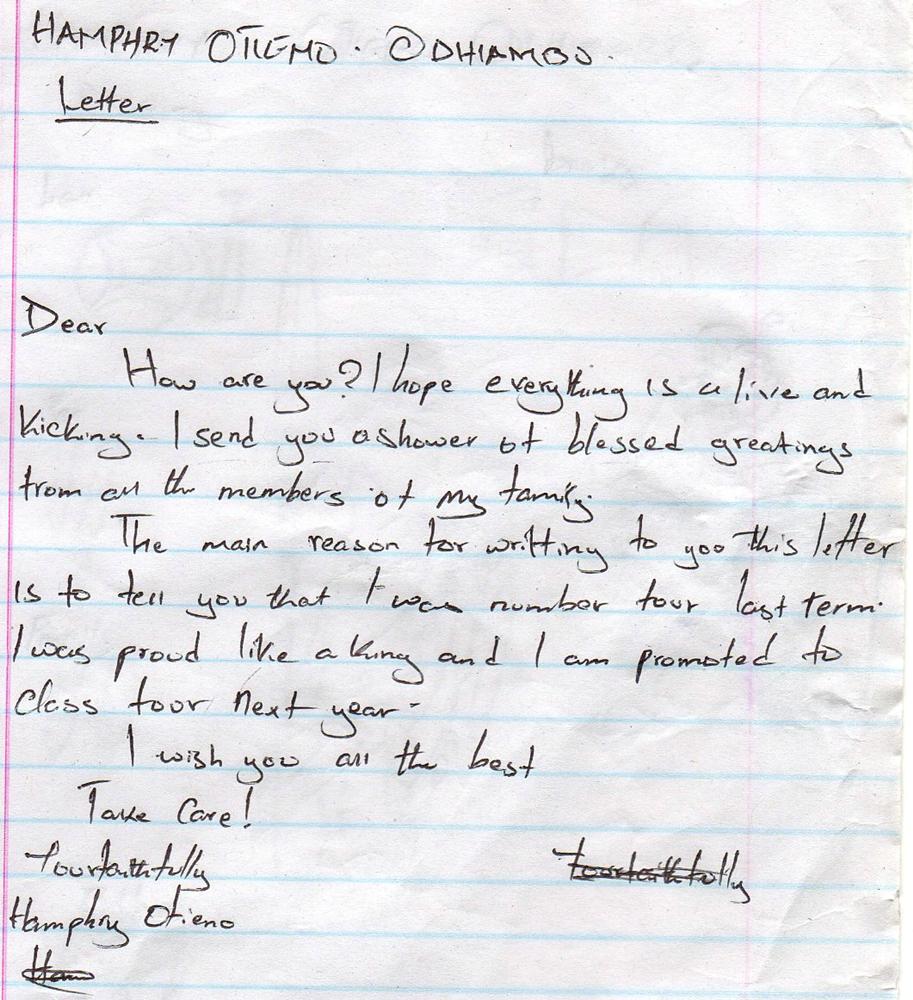 HAMPHRY OTIENO. ODHIAMBO.
Letter
Dear
How are you? I hope everything is a live and
kicking. I send you a shower of blessed greatings
from all the members of my family.
The main reason for writting to you this letter
is to tell you that I was number four last term.
I was proud like a king and I am promoted to
class four next year.
I wish you all the best
Take Care!
Yourfaithfully
Yourfaithfully
Hamphry Otieno
Ham